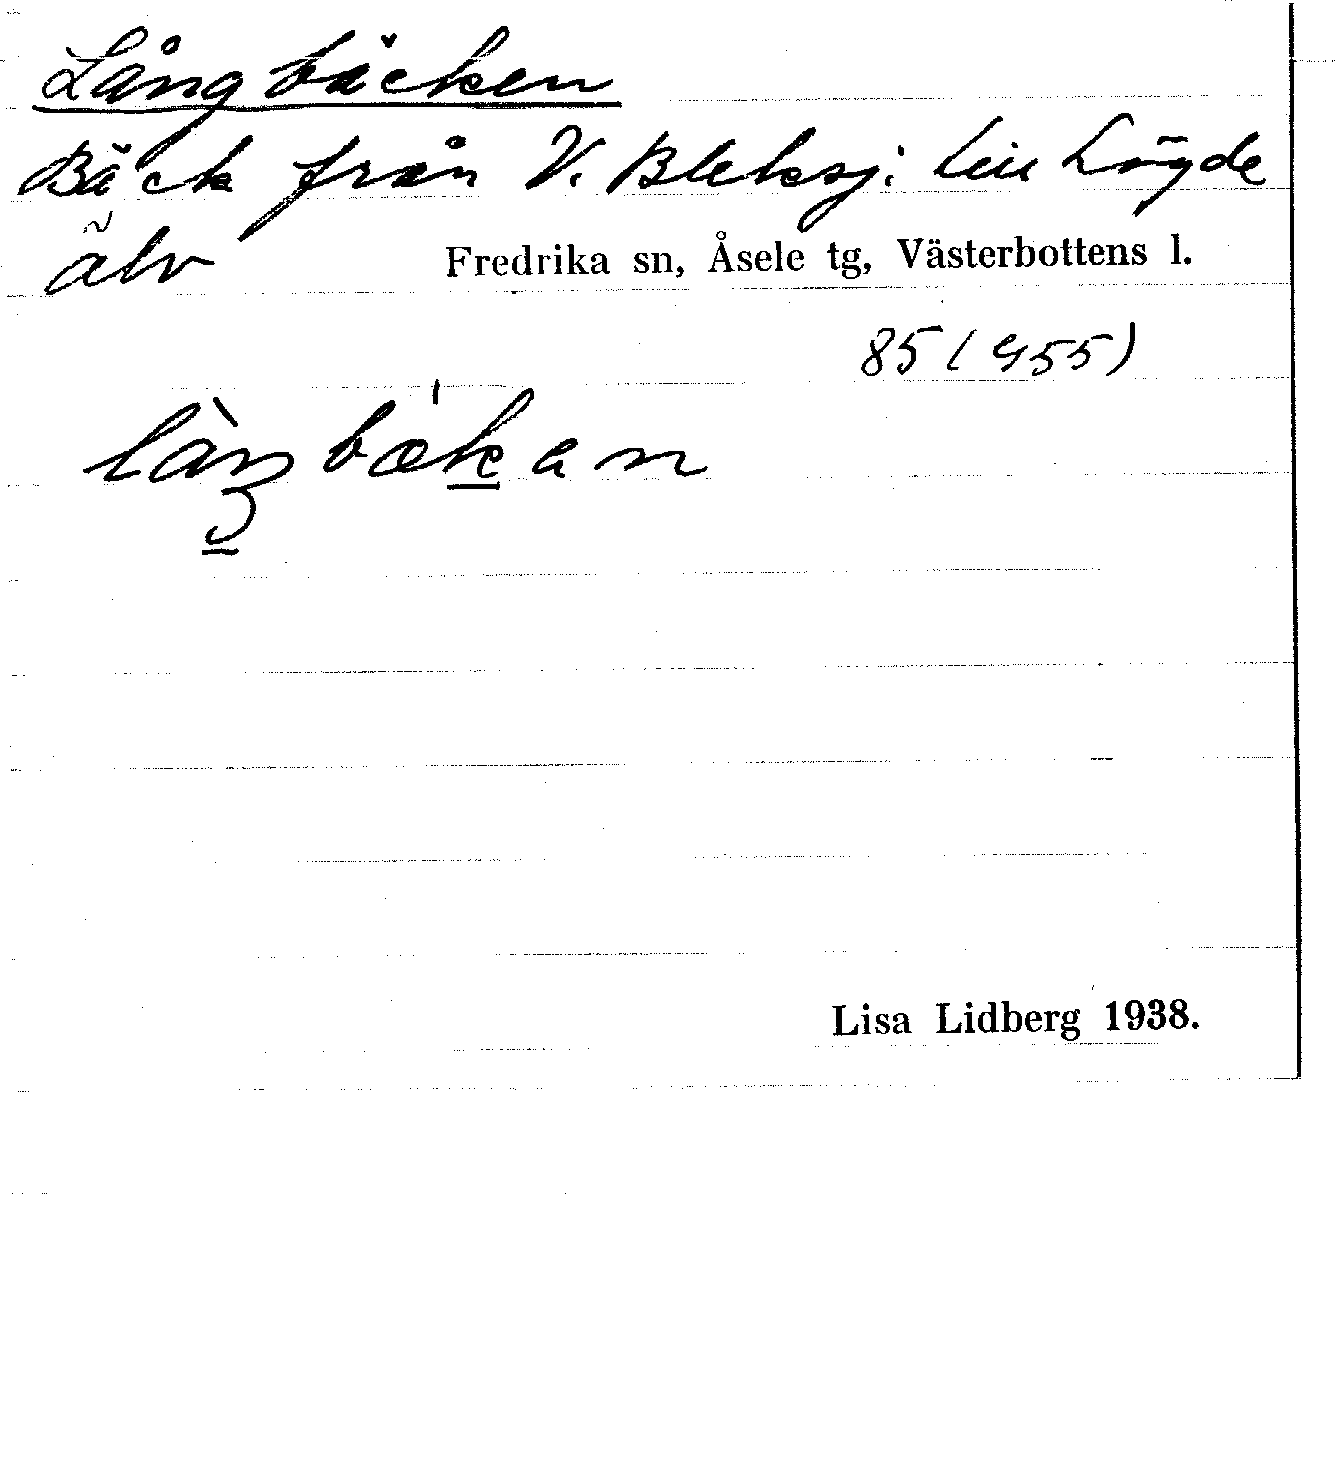 Långbäcken
Bäck från V. Bleksj. till Lögde
älv
Fredrika sn, Åsele tg, Västerbottens l.
85 (955)
Lisa Lidberg 1938.